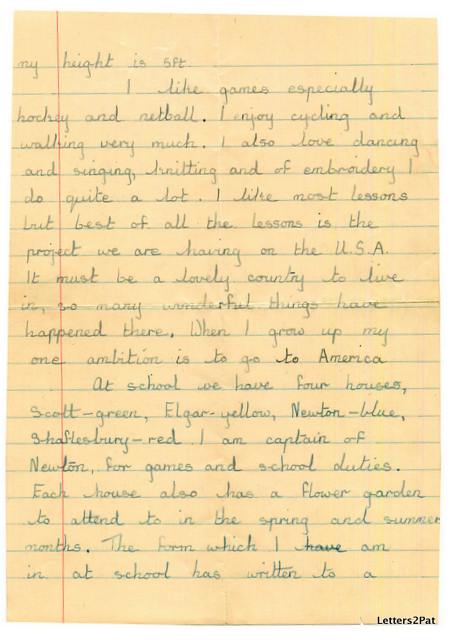 my height is 5ft
I like games especially
hockey and netball. I enjoy cycling and
walking very much. I also love dancing
and singing, knitting and of embroidery I
do quite a lot. I like most lessons
but best of all the lessons is the
project we are having on the U.S.A.
It must be a lovely country to live
in, so many wonderful things have
happened there. When I grow up my
one ambition is to go to America
At school we have four houses,
Scott-green, Elgar-yellow, Newton-blue,
Shaftesbury-red. I am captain of
Newton, for games and school duties.
Each house also has a flower garden
to attend to in the spring and summer
months. The form which I have am
in at school has written to a
Letters2Pat